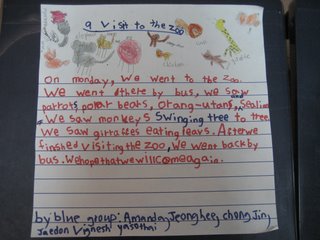 a visit to the zoo
On monday, We went to the zoo.
We went there by bus, we saw
parrots, polar bears, Orang-utans, Sealion
We saw monkeys swinging tree to tree.
We saw girraffes eating leavs. After we
finshed visiting the zoo, We went back by
bus. We hope that we will Come again.
by blue group: Amanda, Jeonghee, chong Jing
Jaedon Vignesh yasothai